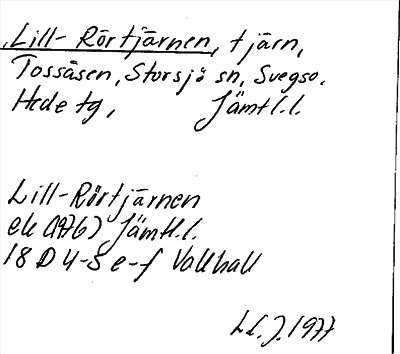 Lill-Rörtjärnen, tjärn,
Tossåsen, Storsjö sn, Svegs o.
Hede tg, Jämtl.l.
Lill-Rörtjärnen
ek (1976) Jämtl.l.
18 D 4-5 e-f Vallhall
L.L.J. 1977